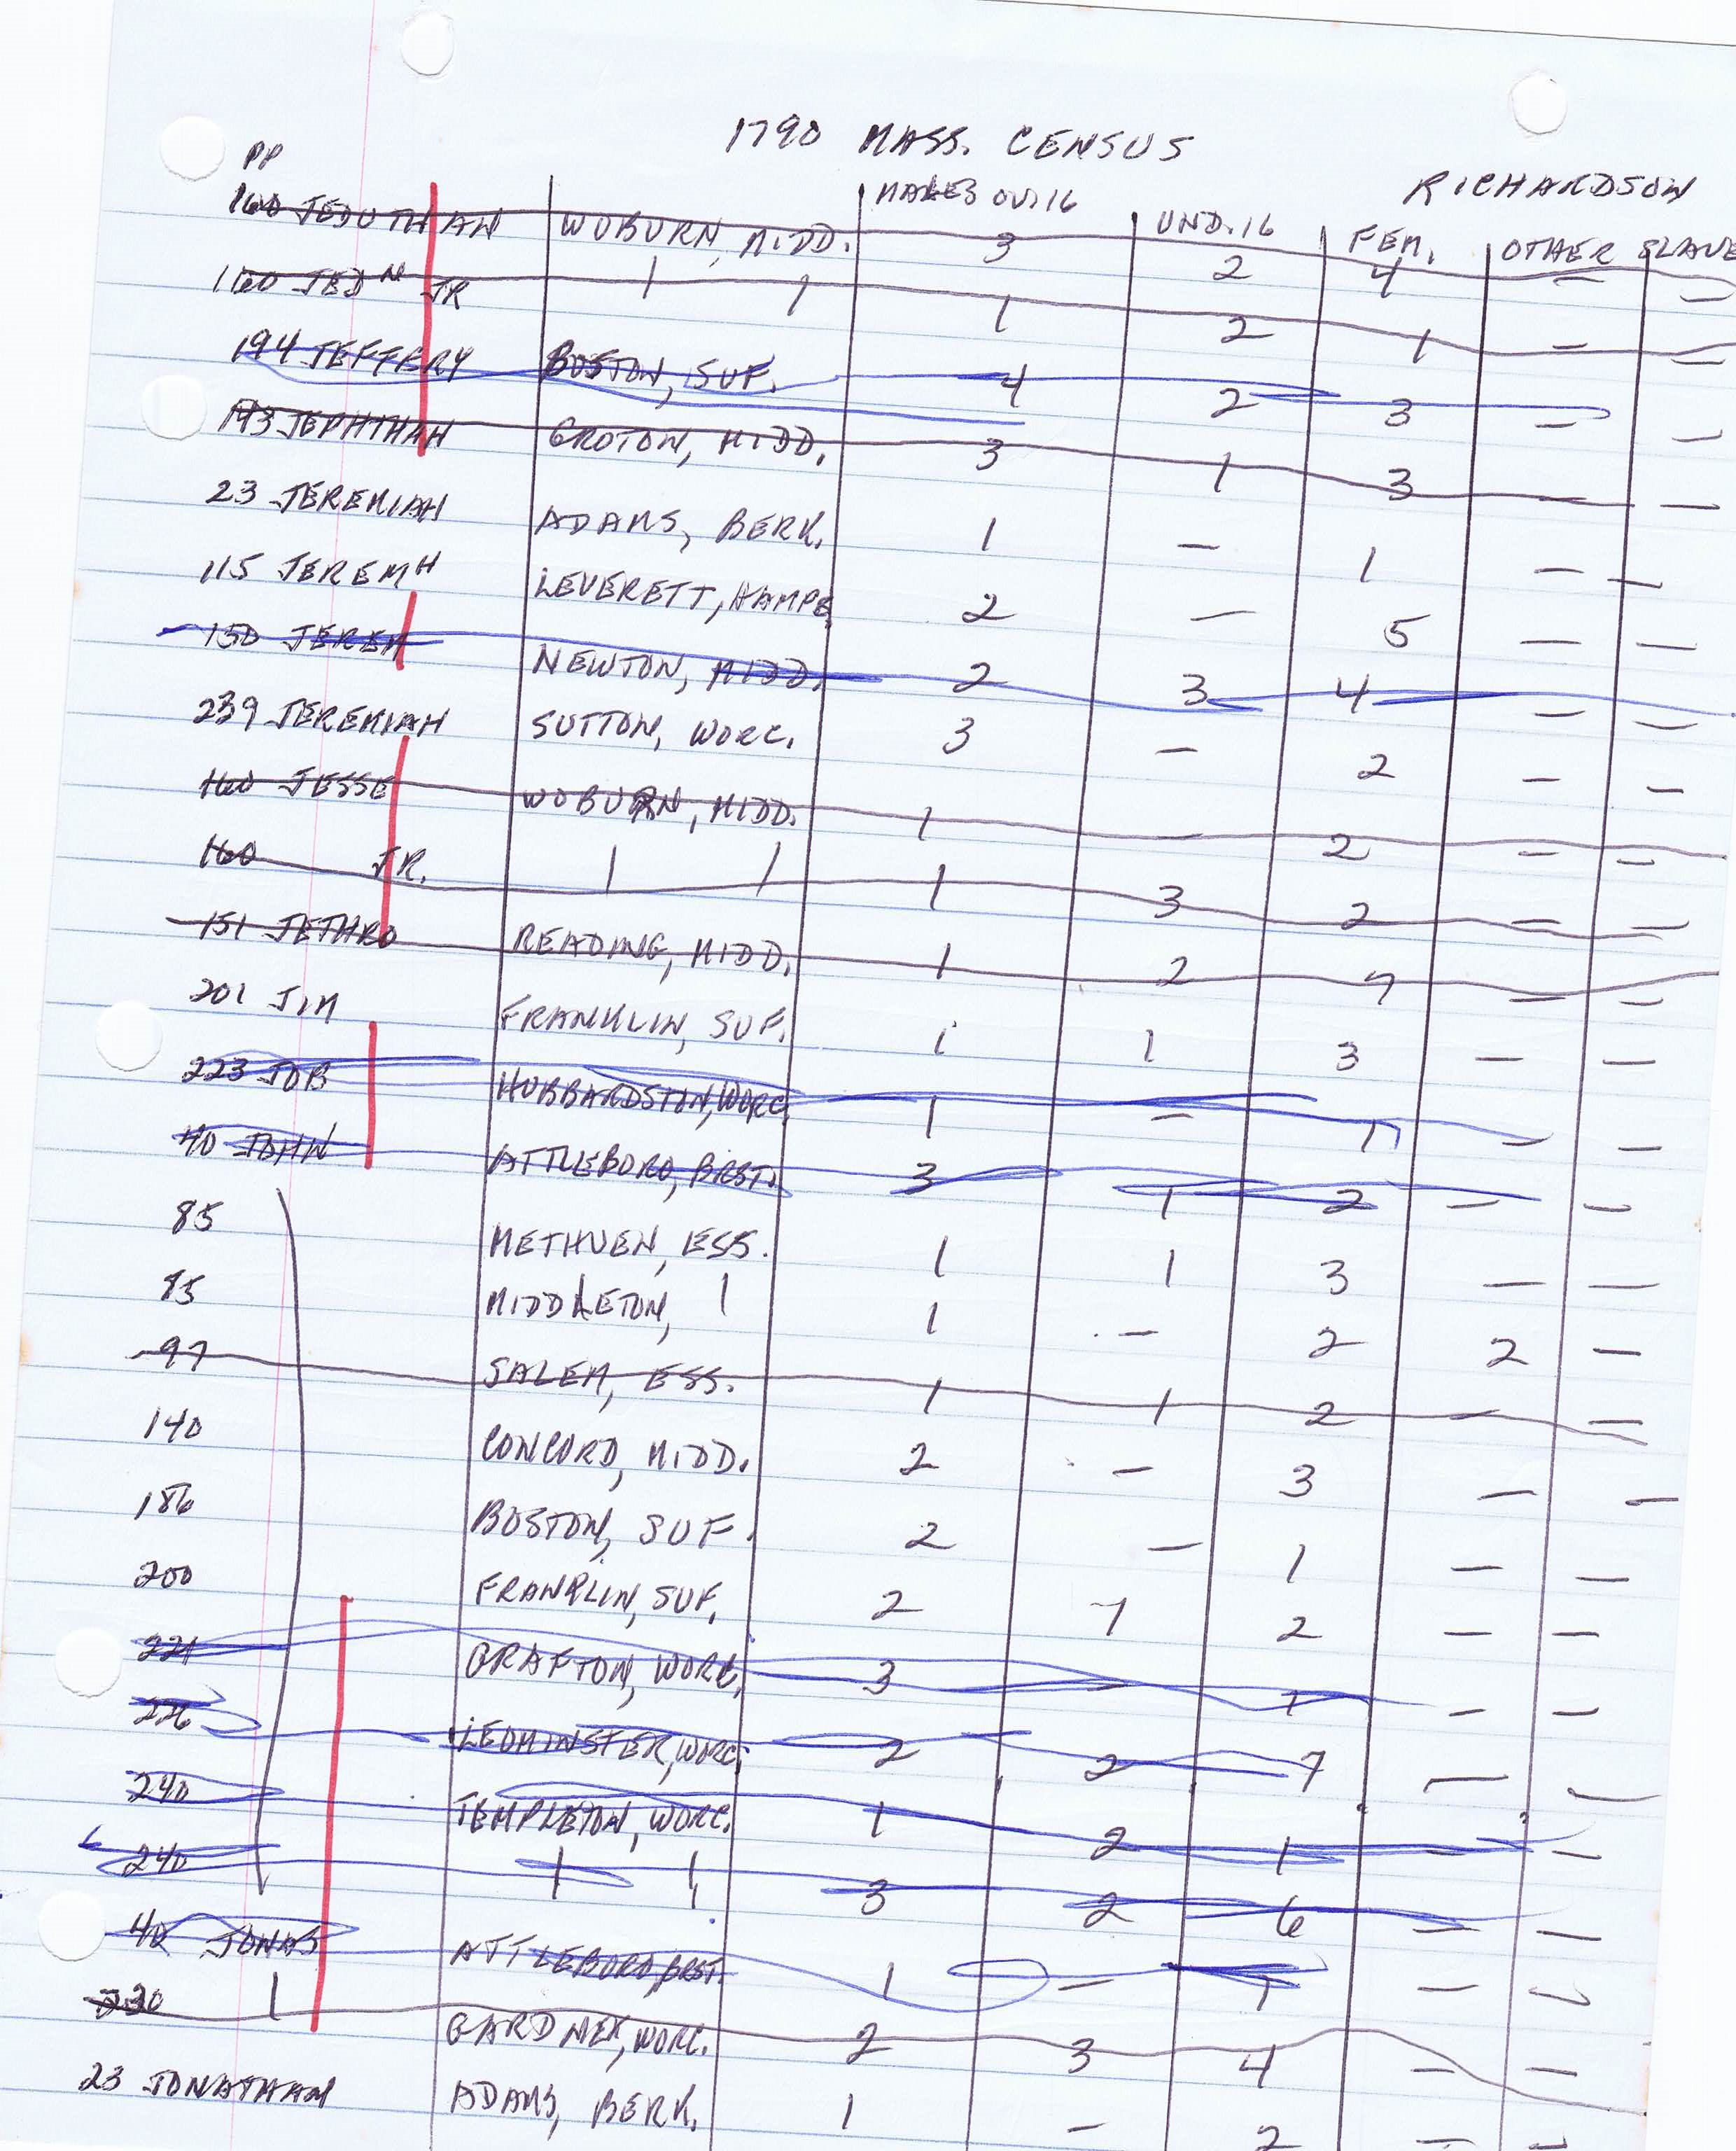 1790 MASS. CENSUS
RICHARDSON
PP MALES OV. 16 UND. 16 FEM. OTHER SLAVE
160 JEDUTHAN WOBURN, MIDD. 3 2 4 — —
160 JEDN JR | | 1 2 1 — —
194 JEFFERY BOSTON, SUF. 4 2 3 — —
143 JEPHTHAH GROTON, MIDD. 3 1 3 — —
23 JEREMIAH ADAMS, BERK. 1 — 1 — —
115 JEREMH LEVERETT, HAMPS. 2 — 5 — —
150 JEREM NEWTON, MIDD. 2 3 4 — —
239 JEREMIAH SUTTON, WORC. 3 — 2 — —
160 JESSE WOBURN, MIDD. 1 — 2 — —
160 JR. | | 1 3 2 — —
151 JETHRO READING, MIDD. 1 2 7 — —
201 JIM FRANKLIN, SUF. 1 1 3 — —
223 JOB HUBBARDSTON, WORC. 1 — 1 — —
40 JOHN ATTLEBORO, BRST. 3 1 2 — —
85 METHUEN, ESS. 1 1 3 — —
85 MIDDLETON, | 1 — 2 2 —
97 SALEM, ESS. 1 1 2 — —
140 CONCORD, MIDD. 2 — 3 — —
186 BOSTON, SUF. 2 — 1 — —
200 FRANKLIN, SUF. 2 7 2 — —
221 GRAFTON, WORC. 3 — 1 — —
226 LEOMINSTER, WORC. 2 2 7 — —
240 TEMPLETON, WORC. 1 2 1 — —
240 | | 3 2 6 — —
40 JONAS ATTLEBORO, BRST. 1 — 1 — —
230 | GARDNER, WORC. 2 3 4 — —
23 JONATHAN ADAMS, BERK. 1 — 2 — —